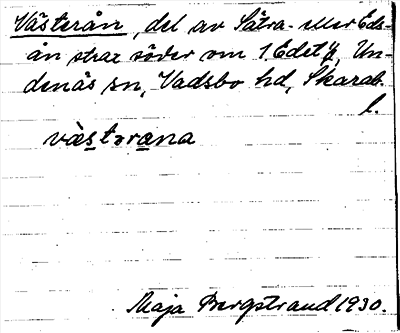 Västerån, del av Sätra- eller Eds-
ån strax söder om 1 Edet y, Un-
denäs sn, Vadsbo hd, Skarab.
l.
västərana
Maja Bergstrand 1930.